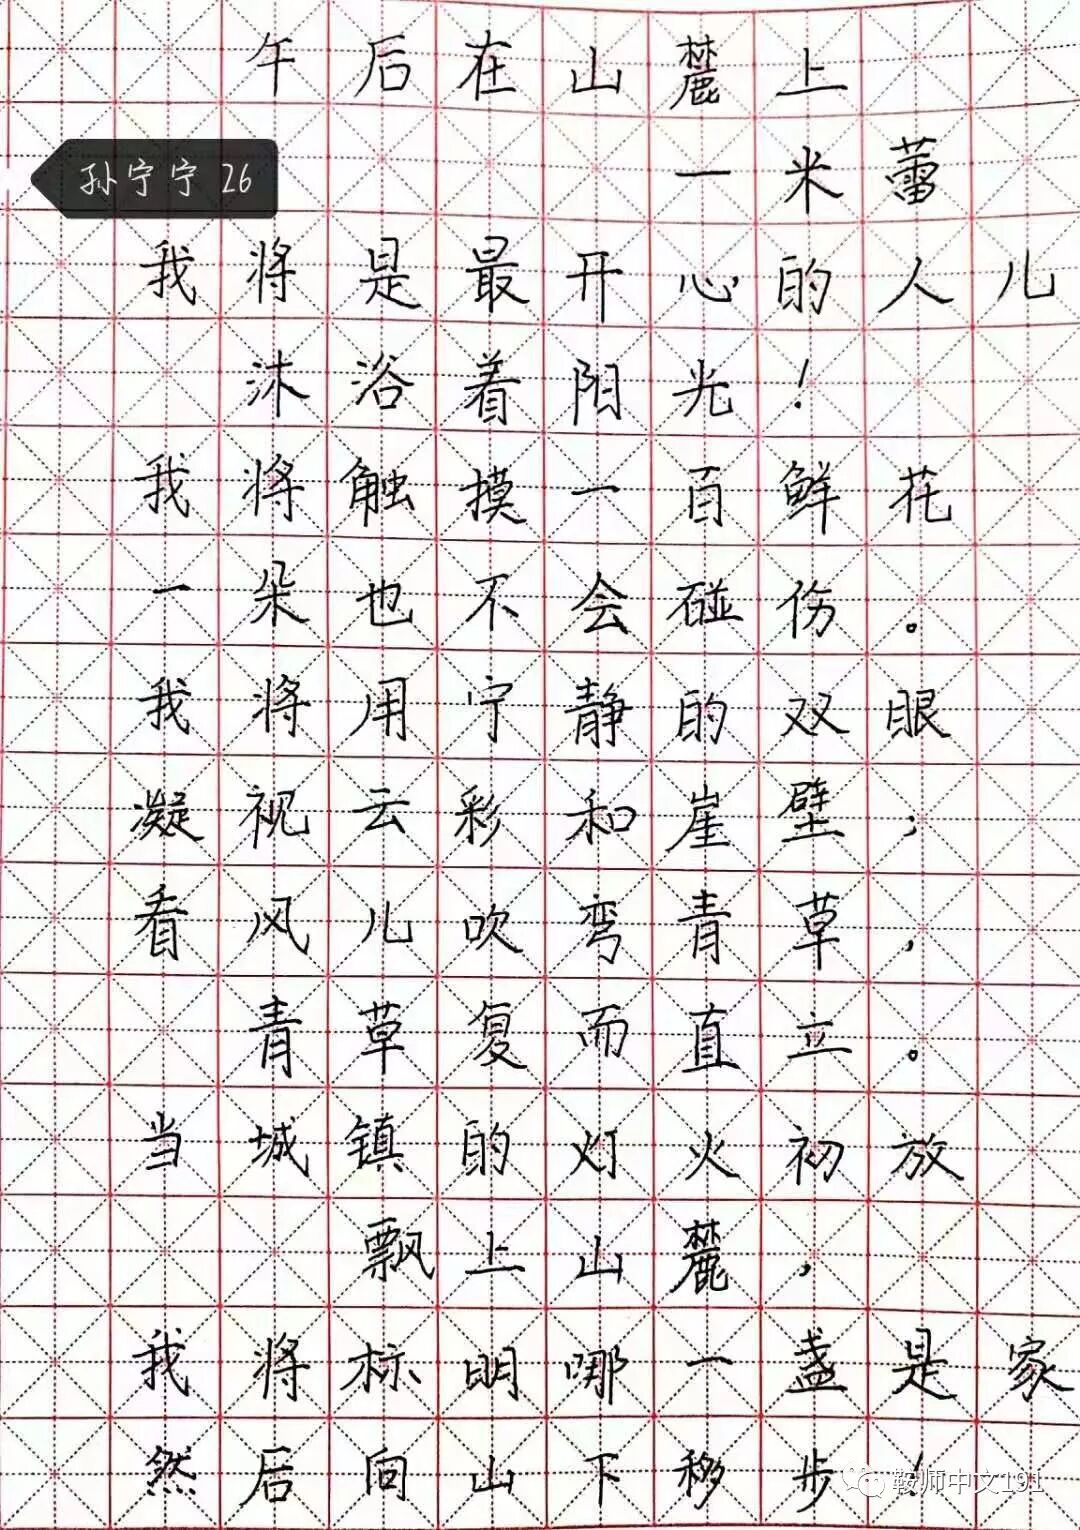 午后在山麓上
孙宁宁 26
一米蕾
我将是最开心的人儿
沐浴着阳光！
我将触摸一百鲜花
一朵也不会碰伤。
我将用宁静的双眼
凝视云彩和崖壁；
看风儿吹弯青草，
青草复而直立。
当城镇的灯火初放
飘上山麓，
我将标明哪一盏是家
然后向山下移步！
鞍师中文191